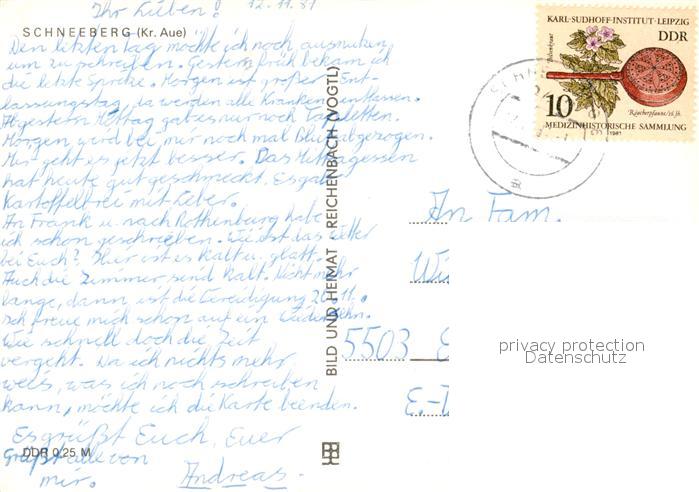 Ihr Lieben! 12.11.81
SCHNEEBERG (Kr. Aue)
Den letzten Tag möchte ich noch ausnutzen
um zu schreiben. Gestern früh bekam ich
die letzte Spritze. Morgen ist großer Ent-
lassungstag, da werden alle Kranken entlassen.
Ab gestern Mittag gab es nur noch Tabletten.
Morgen werd bei mir noch mal Blut abgezogen.
Mir geht es jetzt besser. Das Mittagessen
hat heute gut geschmeckt. Es gab
Kartoffelbrei mit Leber.
An Frank u. nach Rothenburg habe
ich schon geschrieben. Wie ist das Wetter
bei Euch? Hier ist es kalt u. glatt.
Auch die Zimmer sind kalt. Nicht mehr
lange, dann ist die Vereidigung 20.11.
Ich freue mich schon auf ein Wiedersehn.
Wie schnell doch die Zeit
vergeht. Da ich nichts mehr
weis, was ich noch schreiben
kann, möchte ich die Karte beenden.
Es grüßt Euch, Euer
Grüßt alle von
mir. Andreas.
DDR 0,25 M
BILD UND HEIMAT REICHENBACH (VOGTL)
KARL-SUDHOFF-INSTITUT·LEIPZIG
DDR
Bilsenkraut
10
Räucherpfanne/16.Jh.
1981
MEDIZINHISTORISCHE SAMMLUNG
An Fam.
Wi
5503 E
E.-T
privacy protection
Datenschutz